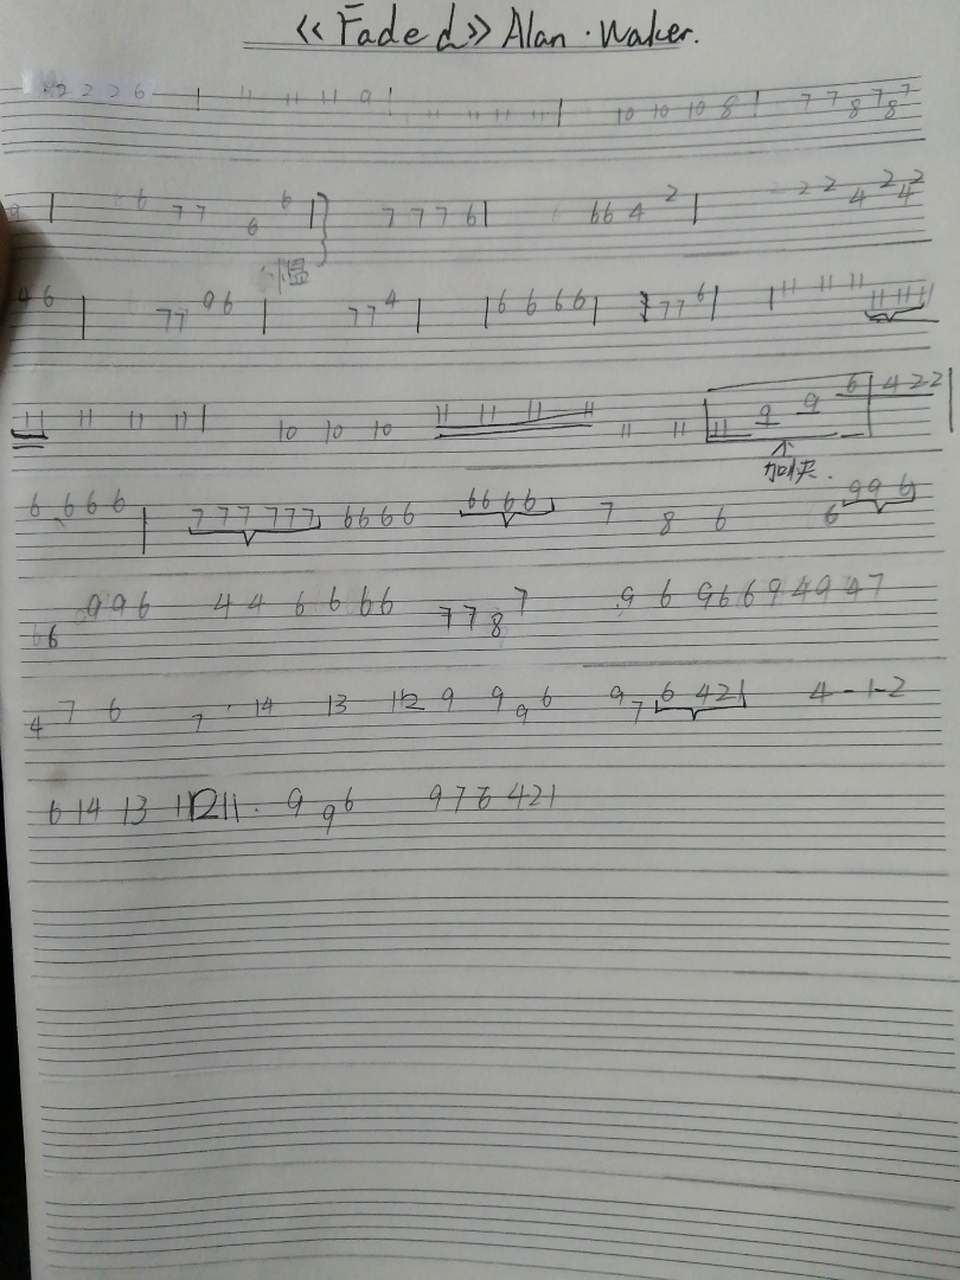 <<Faded>> Alan·Waker.
2 2 2 6 | 11 11 11 9 | 11 11 11 11 | 10 10 10 8 | 7 7 8 7 8 7
9 | 6 6 7 7 6 6 | 7 7 7 6 | 6 6 4 2 | 2 2 2 4 2 4 2
4 6 | 7 7 9 6 | 7 7 4 | | 6 6 6 6 | 7 7 6 | 11 11 11 11 11 11
11 11 11 11 | 10 10 10 11 11 11 11 11 11 11 9 9 6 4 2 2 |
加快.
6 6 6 6 | 7 7 7 7 7 7 6 6 6 6 6 6 6 6 7 8 6 6 9 9 6
6 6 9 9 6 4 4 6 6 6 6 7 7 8 7 9 6 9 6 6 9 4 9 4 7
4 7 6 7 · 14 13 12 9 9 9 6 9 7 6 4 2 1 4 - 1 - 2
6 14 13 12 11 · 9 9 6 9 7 6 4 2 1